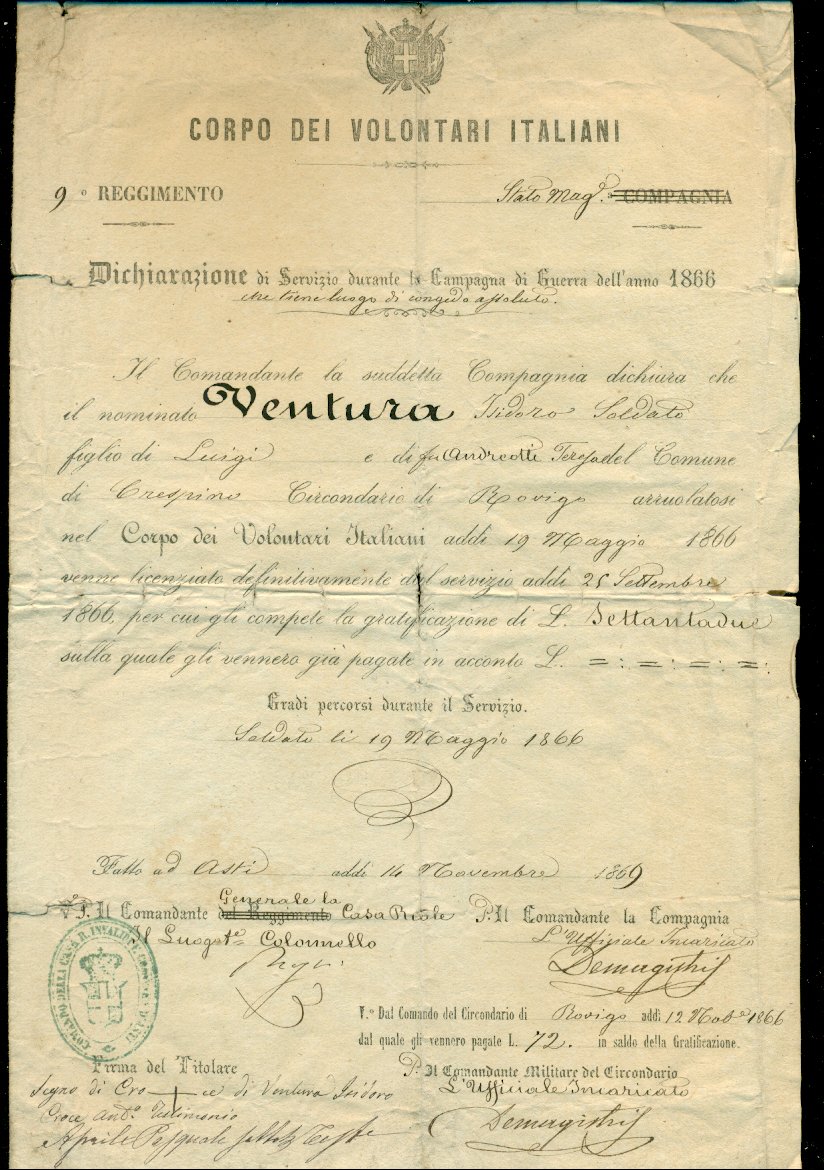 CORPO DEI VOLONTARI ITALIANI
9° REGGIMENTO Stato Magre. a COMPAGNIA
Dichiarazione di Servizio durante la Campagna di Guerra dell'anno 1866
che tiene luogo di congedo assoluto.
Il Comandante la suddetta Compagnia dichiara che
il nominato Ventura Isidoro Soldato
figlio di Luigi e di fu Andreotti Teresa del Comune
di Crespino Circondario di Rovigo arruolatosi
nel Corpo dei Volontari Italiani addì 19 Maggio 1866
venne licenziato definitivamente dal servizio addì 25 Settembre
1866, per cui gli compete la gratificazione di L. Settantadue
sulla quale gli vennero già pagate in acconto L. =:=:=:=:
Gradi percorsi durante il Servizio.
Soldato li 19 Maggio 1866
Fatto ad Asti addì 14 Novembre 1869
Generale la
V.° P. Il Comandante del Reggimento Casa Reale P. Il Comandante la Compagnia
Il Luogote Colonnello L'Uffiziale Incaricato
Demagistris
COMANDO DELLA CASA R. INVALIDI ASTI
V.° Dal Comando del Circondario di Rovigo addì 12 Nobe 1866
dal quale gli vennero pagate L. 72. in saldo della Gratificazione.
Firma del Titolare P. Il Comandante Militare del Circondario
Segno di Cro + ce di Ventura Isidoro L'Uffiziale Incaricato
Croce Anto. Testimonio
Aprile Pasquale Teste Demagistris